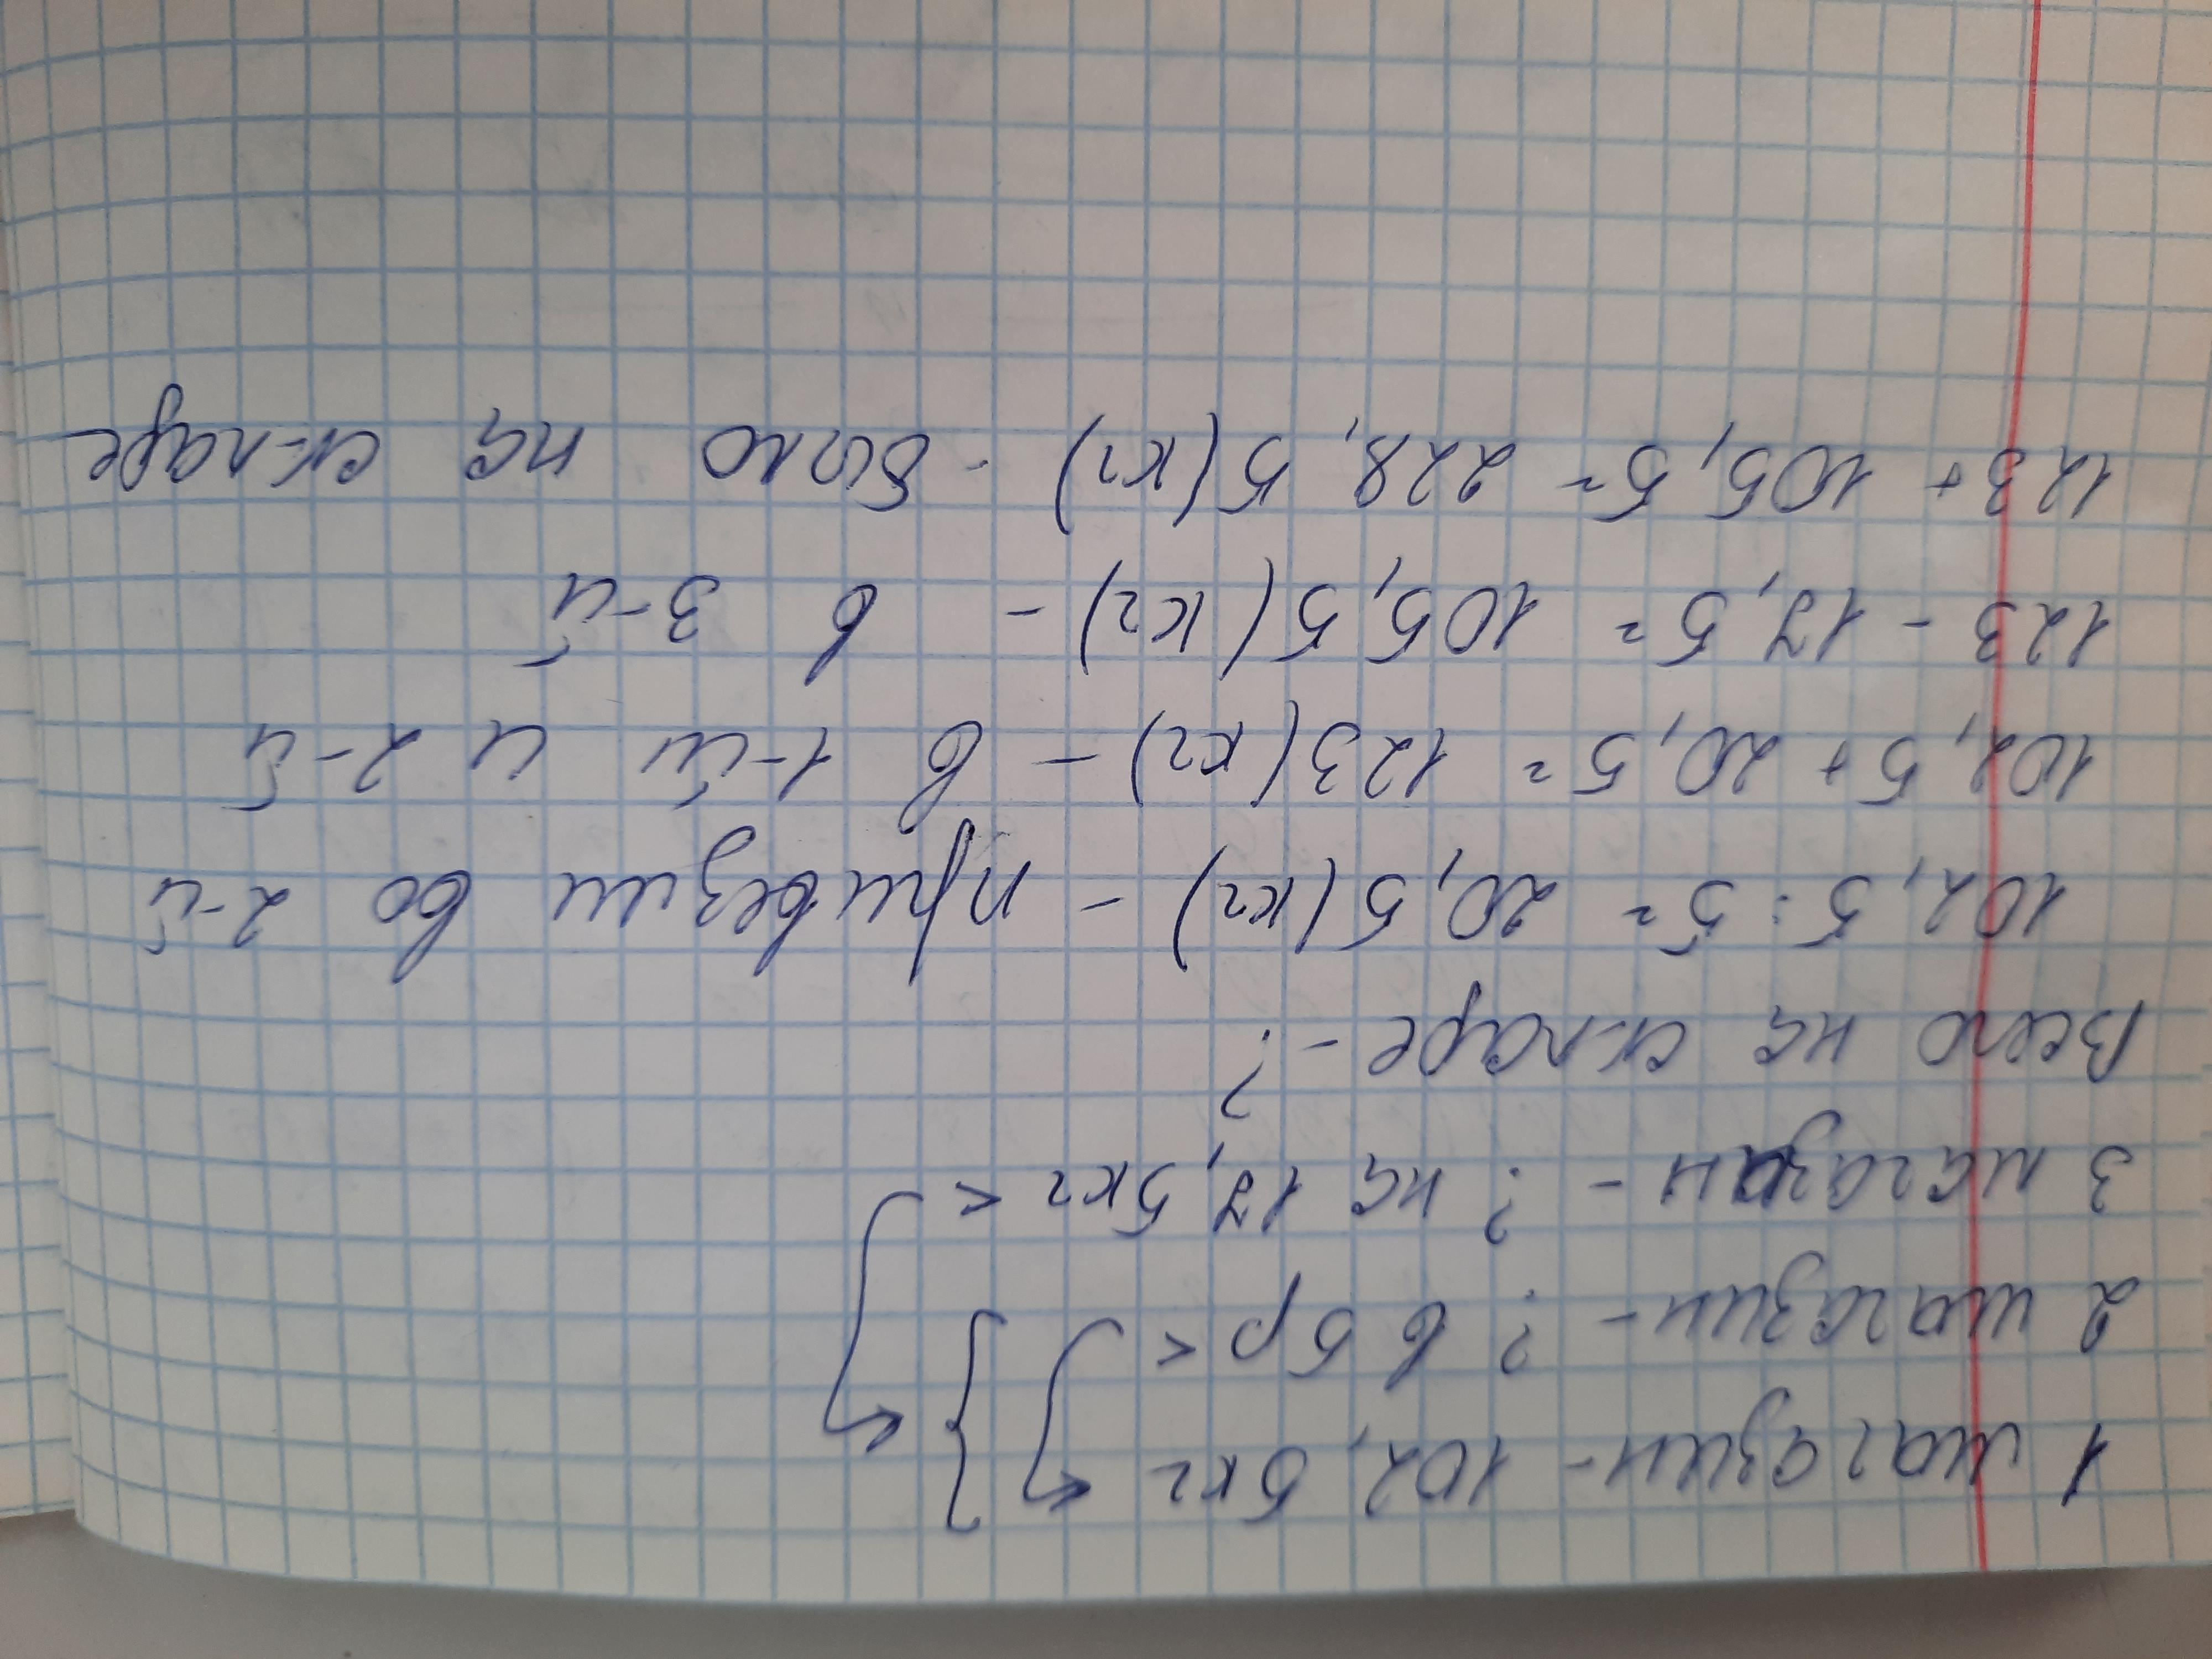 1 магазин - 102,5кг
2 магазин - ? в 5р <
3 магазин - ? на 17,5кг <
Всего на складе - ?
102,5 : 5 = 20,5(кг) - привезли во 2-й
102,5 + 20,5 = 123(кг) - в 1-й и 2-й
123 - 17,5 = 105,5(кг) - в 3-й
123 + 105,5 = 228,5(кг) - было на складе